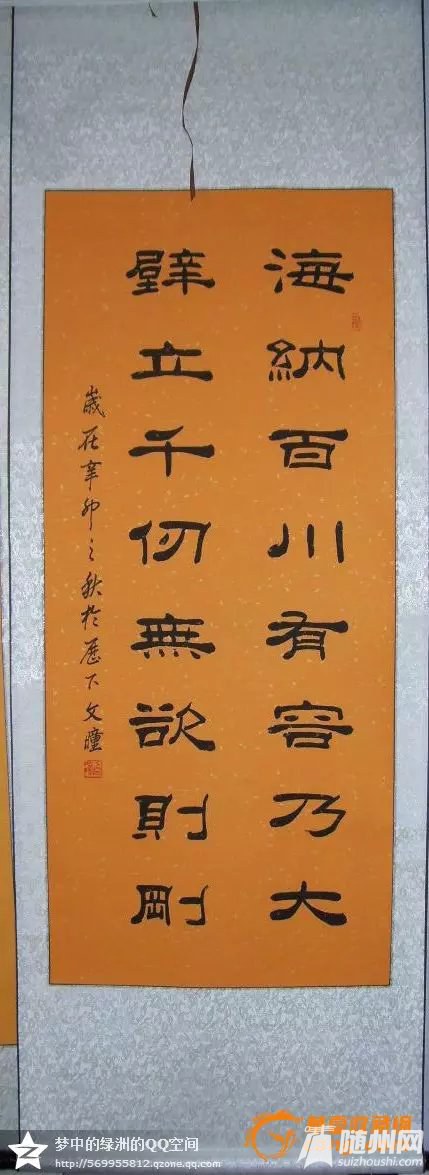 海納百川有容乃大
壁立千仞無欲則剛
歲在辛卯之秋於歷下文瞳
梦中的绿洲的QQ空间
http://569955812.qzone.qq.com
随州网
suizhoushi.com